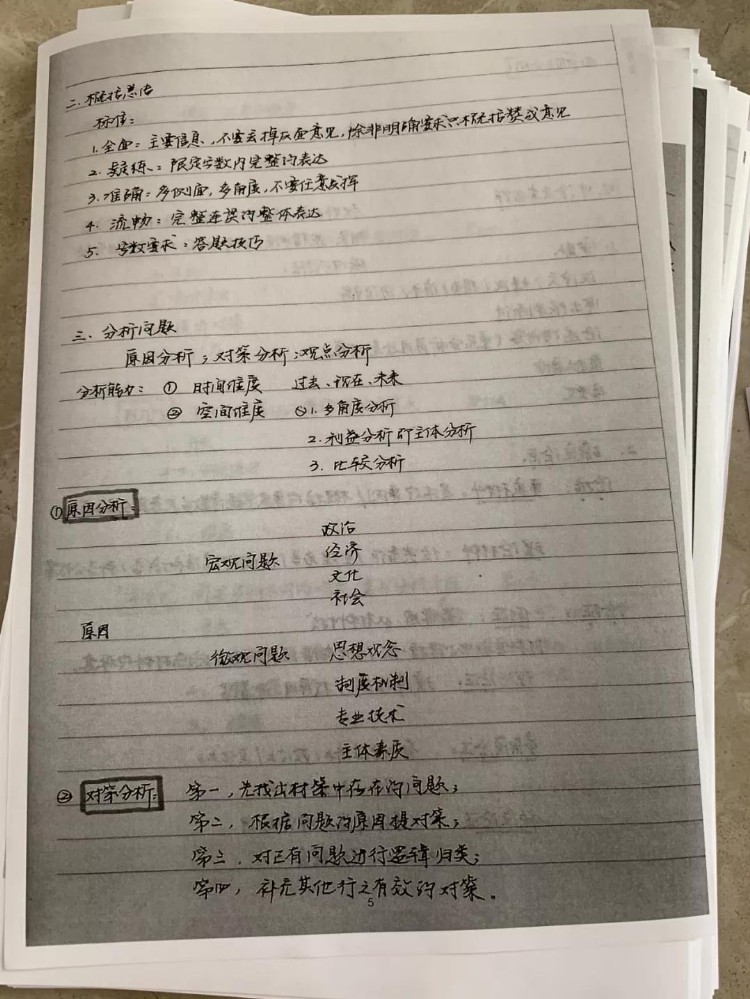 二. 概括总结
标准：
1. 全面：主要信息、不要丢掉反面意见，除非明确要求只概括赞成意见
2. 凝练：限定字数内完整的表达
3. 准确：多侧面，多角度，不要任意发挥
4. 流畅：完整连误的整体表达
5. 字数要求：答题技巧
三. 分析问题
原因分析；对策分析；观点分析
分析能力： ① 时间维度 过去、现在、未来
② 空间维度 1. 多角度分析
2. 利益分析即主体分析
3. 比较分析
① 原因分析：
政治
宏观问题 经济
文化
社会
原因
微观问题 思想观念
制度机制
专业技术
主体素质
② 对策分析： 第一，先找出材料中存在的问题；
第二，根据问题的原因提对策；
第三，对已有问题进行逻辑归类；
第四，补充其他行之有效的对策。
5